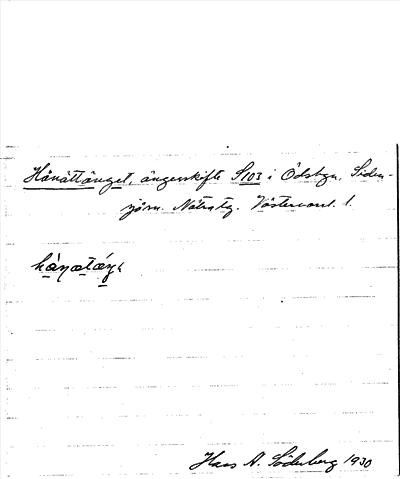 Hånättänget, ängesskifte S103 i Ödsbyn, Siden-
sjösn. Nätratg. Västernorl. l.
hånatäŋ
Hans A. Söderberg 1930